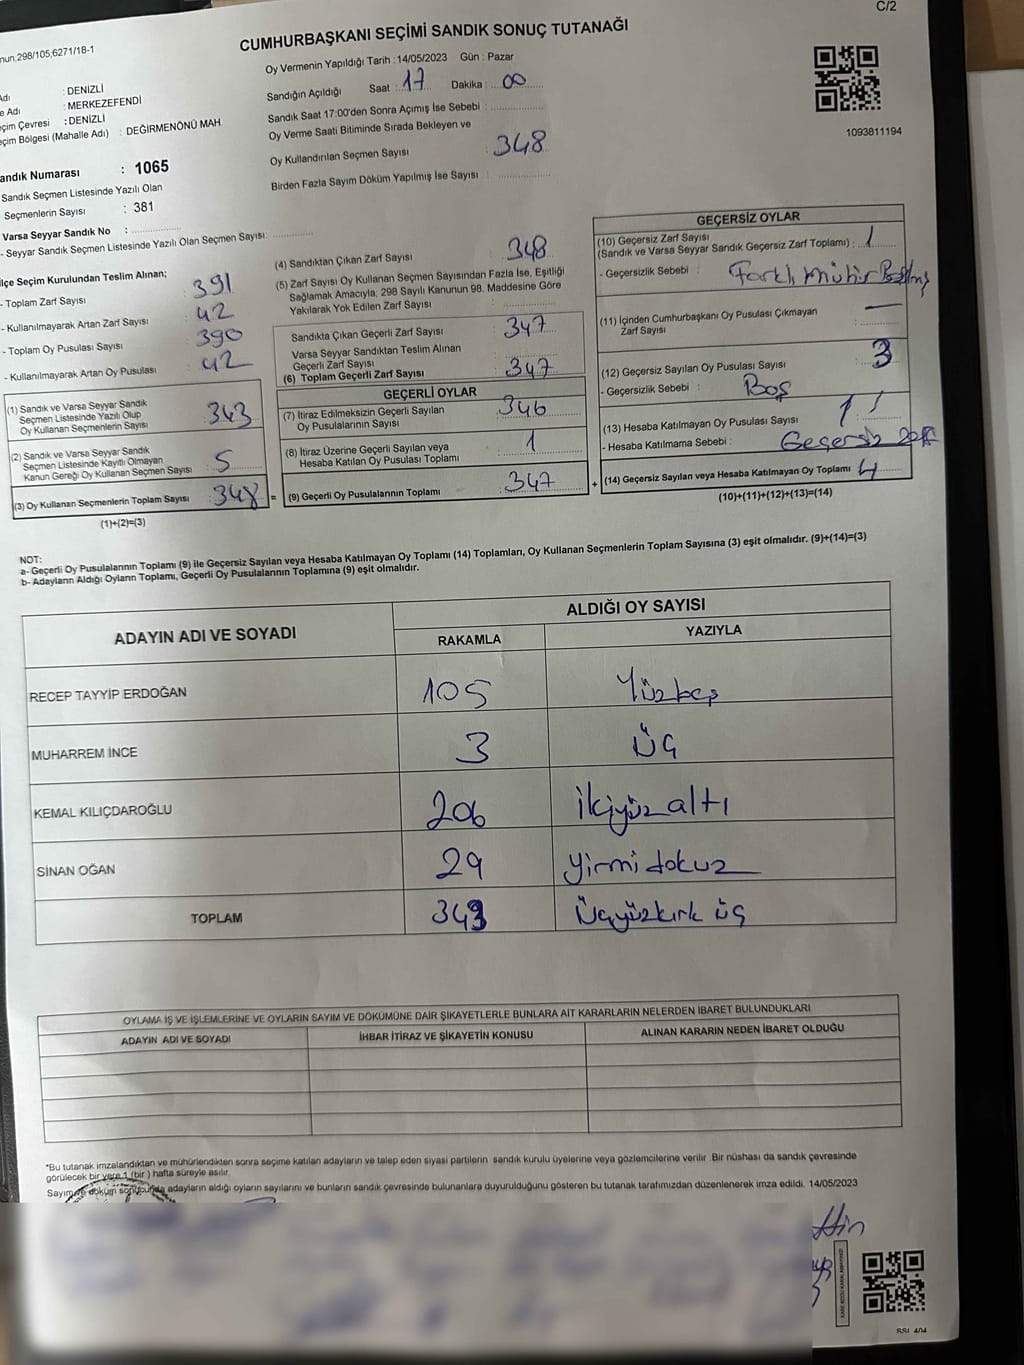 C/2
nun,298/105,6271/18-1
CUMHURBAŞKANI SEÇİMİ SANDIK SONUÇ TUTANAĞI
Adı : DENİZLİ
e Adı : MERKEZEFENDİ
çim Çevresi : DENİZLİ
çim Bölgesi (Mahalle Adı) : DEĞİRMENÖNÜ MAH.
andık Numarası : 1065
Sandık Seçmen Listesinde Yazılı Olan
Seçmenlerin Sayısı : 381
Varsa Seyyar Sandık No :
- Seyyar Sandık Seçmen Listesinde Yazılı Olan Seçmen Sayısı:
Oy Vermenin Yapıldığı Tarih : 14/05/2023 Gün : Pazar
Sandığın Açıldığı Saat : 17 Dakika : 00
Sandık Saat 17:00'den Sonra Açımış İse Sebebi :
Oy Verme Saati Bitiminde Sırada Bekleyen ve
Oy Kullandırılan Seçmen Sayısı : 348
Birden Fazla Sayım Döküm Yapılmış İse Sayısı :
1093811194
İlçe Seçim Kurulundan Teslim Alınan;
- Toplam Zarf Sayısı : 391
- Kullanılmayarak Artan Zarf Sayısı : 42
- Toplam Oy Pusulası Sayısı : 390
- Kullanılmayarak Artan Oy Pusulası : 42
(1) Sandık ve Varsa Seyyar Sandık
Seçmen Listesinde Yazılı Olup
Oy Kullanan Seçmenlerin Sayısı : 343
(2) Sandık ve Varsa Seyyar Sandık
Seçmen Listesinde Kayıtlı Olmayan
Kanun Gereği Oy Kullanan Seçmen Sayısı : 5
(3) Oy Kullanan Seçmenlerin Toplam Sayısı : 348 =
(1)+(2)=(3)
(4) Sandıktan Çıkan Zarf Sayısı : 348
(5) Zarf Sayısı Oy Kullanan Seçmen Sayısından Fazla İse, Eşitliği
Sağlamak Amacıyla, 298 Sayılı Kanunun 98. Maddesine Göre
Yakılarak Yok Edilen Zarf Sayısı :
Sandıkta Çıkan Geçerli Zarf Sayısı : 347
Varsa Seyyar Sandıktan Teslim Alınan
Geçerli Zarf Sayısı
(6) Toplam Geçerli Zarf Sayısı : 347
GEÇERLİ OYLAR
(7) İtiraz Edilmeksizin Geçerli Sayılan
Oy Pusulalarının Sayısı : 346
(8) İtiraz Üzerine Geçerli Sayılan veya
Hesaba Katılan Oy Pusulası Toplamı : 1
(9) Geçerli Oy Pusulalarının Toplamı : 347 +
GEÇERSİZ OYLAR
(10) Geçersiz Zarf Sayısı
(Sandık ve Varsa Seyyar Sandık Geçersiz Zarf Toplamı) : 1
- Geçersizlik Sebebi : Farklı Mühür Basılmış
(11) İçinden Cumhurbaşkanı Oy Pusulası Çıkmayan
Zarf Sayısı : —
(12) Geçersiz Sayılan Oy Pusulası Sayısı : 3
- Geçersizlik Sebebi : Boş
(13) Hesaba Katılmayan Oy Pusulası Sayısı : 1
- Hesaba Katılmama Sebebi : Geçersiz zarf
(14) Geçersiz Sayılan veya Hesaba Katılmayan Oy Toplamı : 4
(10)+(11)+(12)+(13)=(14)
NOT:
a- Geçerli Oy Pusulalarının Toplamı (9) ile Geçersiz Sayılan veya Hesaba Katılmayan Oy Toplamı (14) Toplamları, Oy Kullanan Seçmenlerin Toplam Sayısına (3) eşit olmalıdır. (9)+(14)=(3)
b- Adayların Aldığı Oyların Toplamı, Geçerli Oy Pusulalarının Toplamına (9) eşit olmalıdır.
ADAYIN ADI VE SOYADI ALDIĞI OY SAYISI
RAKAMLA YAZIYLA
RECEP TAYYİP ERDOĞAN 105 Yüzbeş
MUHARREM İNCE 3 Üç
KEMAL KILIÇDAROĞLU 206 İkiyüzaltı
SİNAN OĞAN 29 Yirmidokuz
TOPLAM 343 Üçyüzkırk üç
OYLAMA İŞ VE İŞLEMLERİNE VE OYLARIN SAYIM VE DÖKÜMÜNE DAİR ŞİKAYETLERLE BUNLARA AİT KARARLARIN NELERDEN İBARET BULUNDUKLARI
ADAYIN ADI VE SOYADI İHBAR İTİRAZ VE ŞİKAYETİN KONUSU ALINAN KARARIN NEDEN İBARET OLDUĞU
*Bu tutanak imzalandıktan ve mühürlendikten sonra seçime katılan adayların ve talep eden siyasi partilerin sandık kurulu üyelerine veya gözlemcilerine verilir .Bir nüshası da sandık çevresinde
görülecek bir yere 1 (bir ) hafta süreyle asılır.
Sayım ve döküm sonucunda adayların aldığı oyların sayılarını ve bunların sandık çevresinde bulunanlara duyurulduğunu gösteren bu tutanak tarafımızdan düzenlenerek imza edildi. 14/05/2023